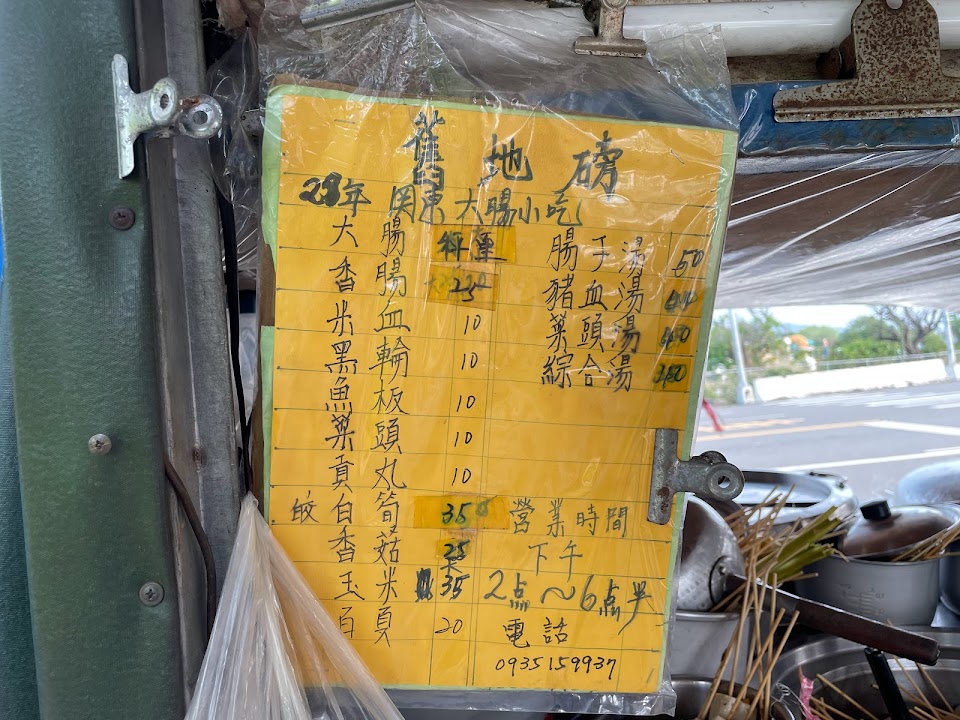 舊地磅
28年 関東大腸小吃
大腸 秤重 腸子湯 50
香腸 25 豬血湯
米血 10 菜頭湯
黑輪 10 綜合湯
魚板 10
菜頭 10
貢丸 10
筊白筍 35 營業時間
香菇 25 下午
玉米 35 2点~6点半
百頁 20 電話
0935159937